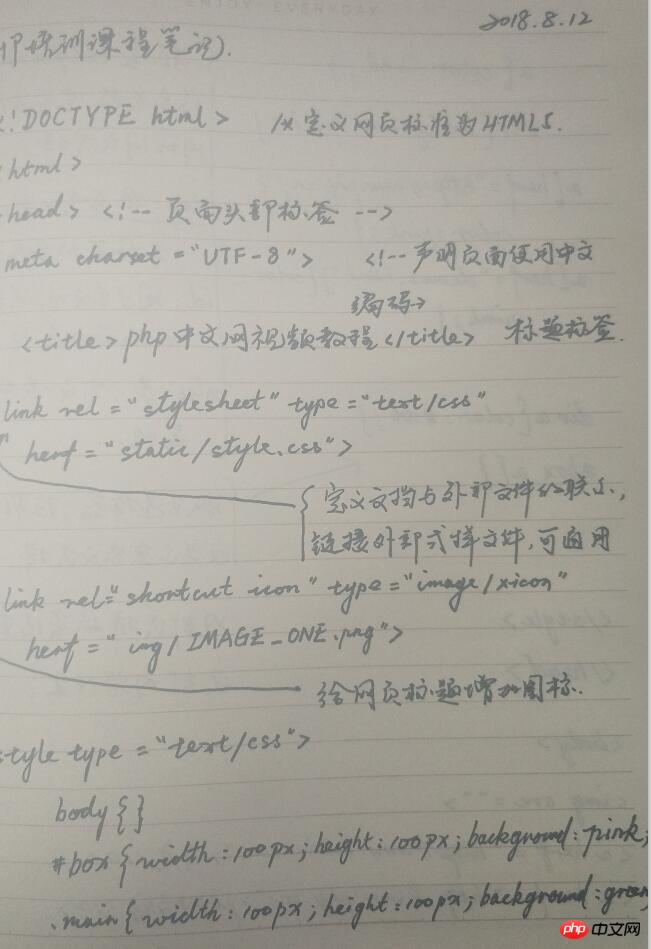 2018.8.12
培训课程笔记).
<!DOCTYPE html> /* 定义网页标准为HTML5.
html>
head> <!-- 页面头部标签 -->
meta charset="UTF-8"> <!-- 声明页面使用中文
编码>
<title>php中文网视频教程</title> 标题标签.
link rel="stylesheet" type="text/css"
herf="static/style.css">
定义文档与外部文件的联系,
链接外部式样文件,可通用
link rel="shortcut icon" type="image/x-icon"
herf="img/IMAGE_ONE.png">
给网页标题增加图标.
style type="text/css">
body{}
#box{width:100px;height:100px;background:pink;
.main{width:100px;height:100px;background:green;
php中文网